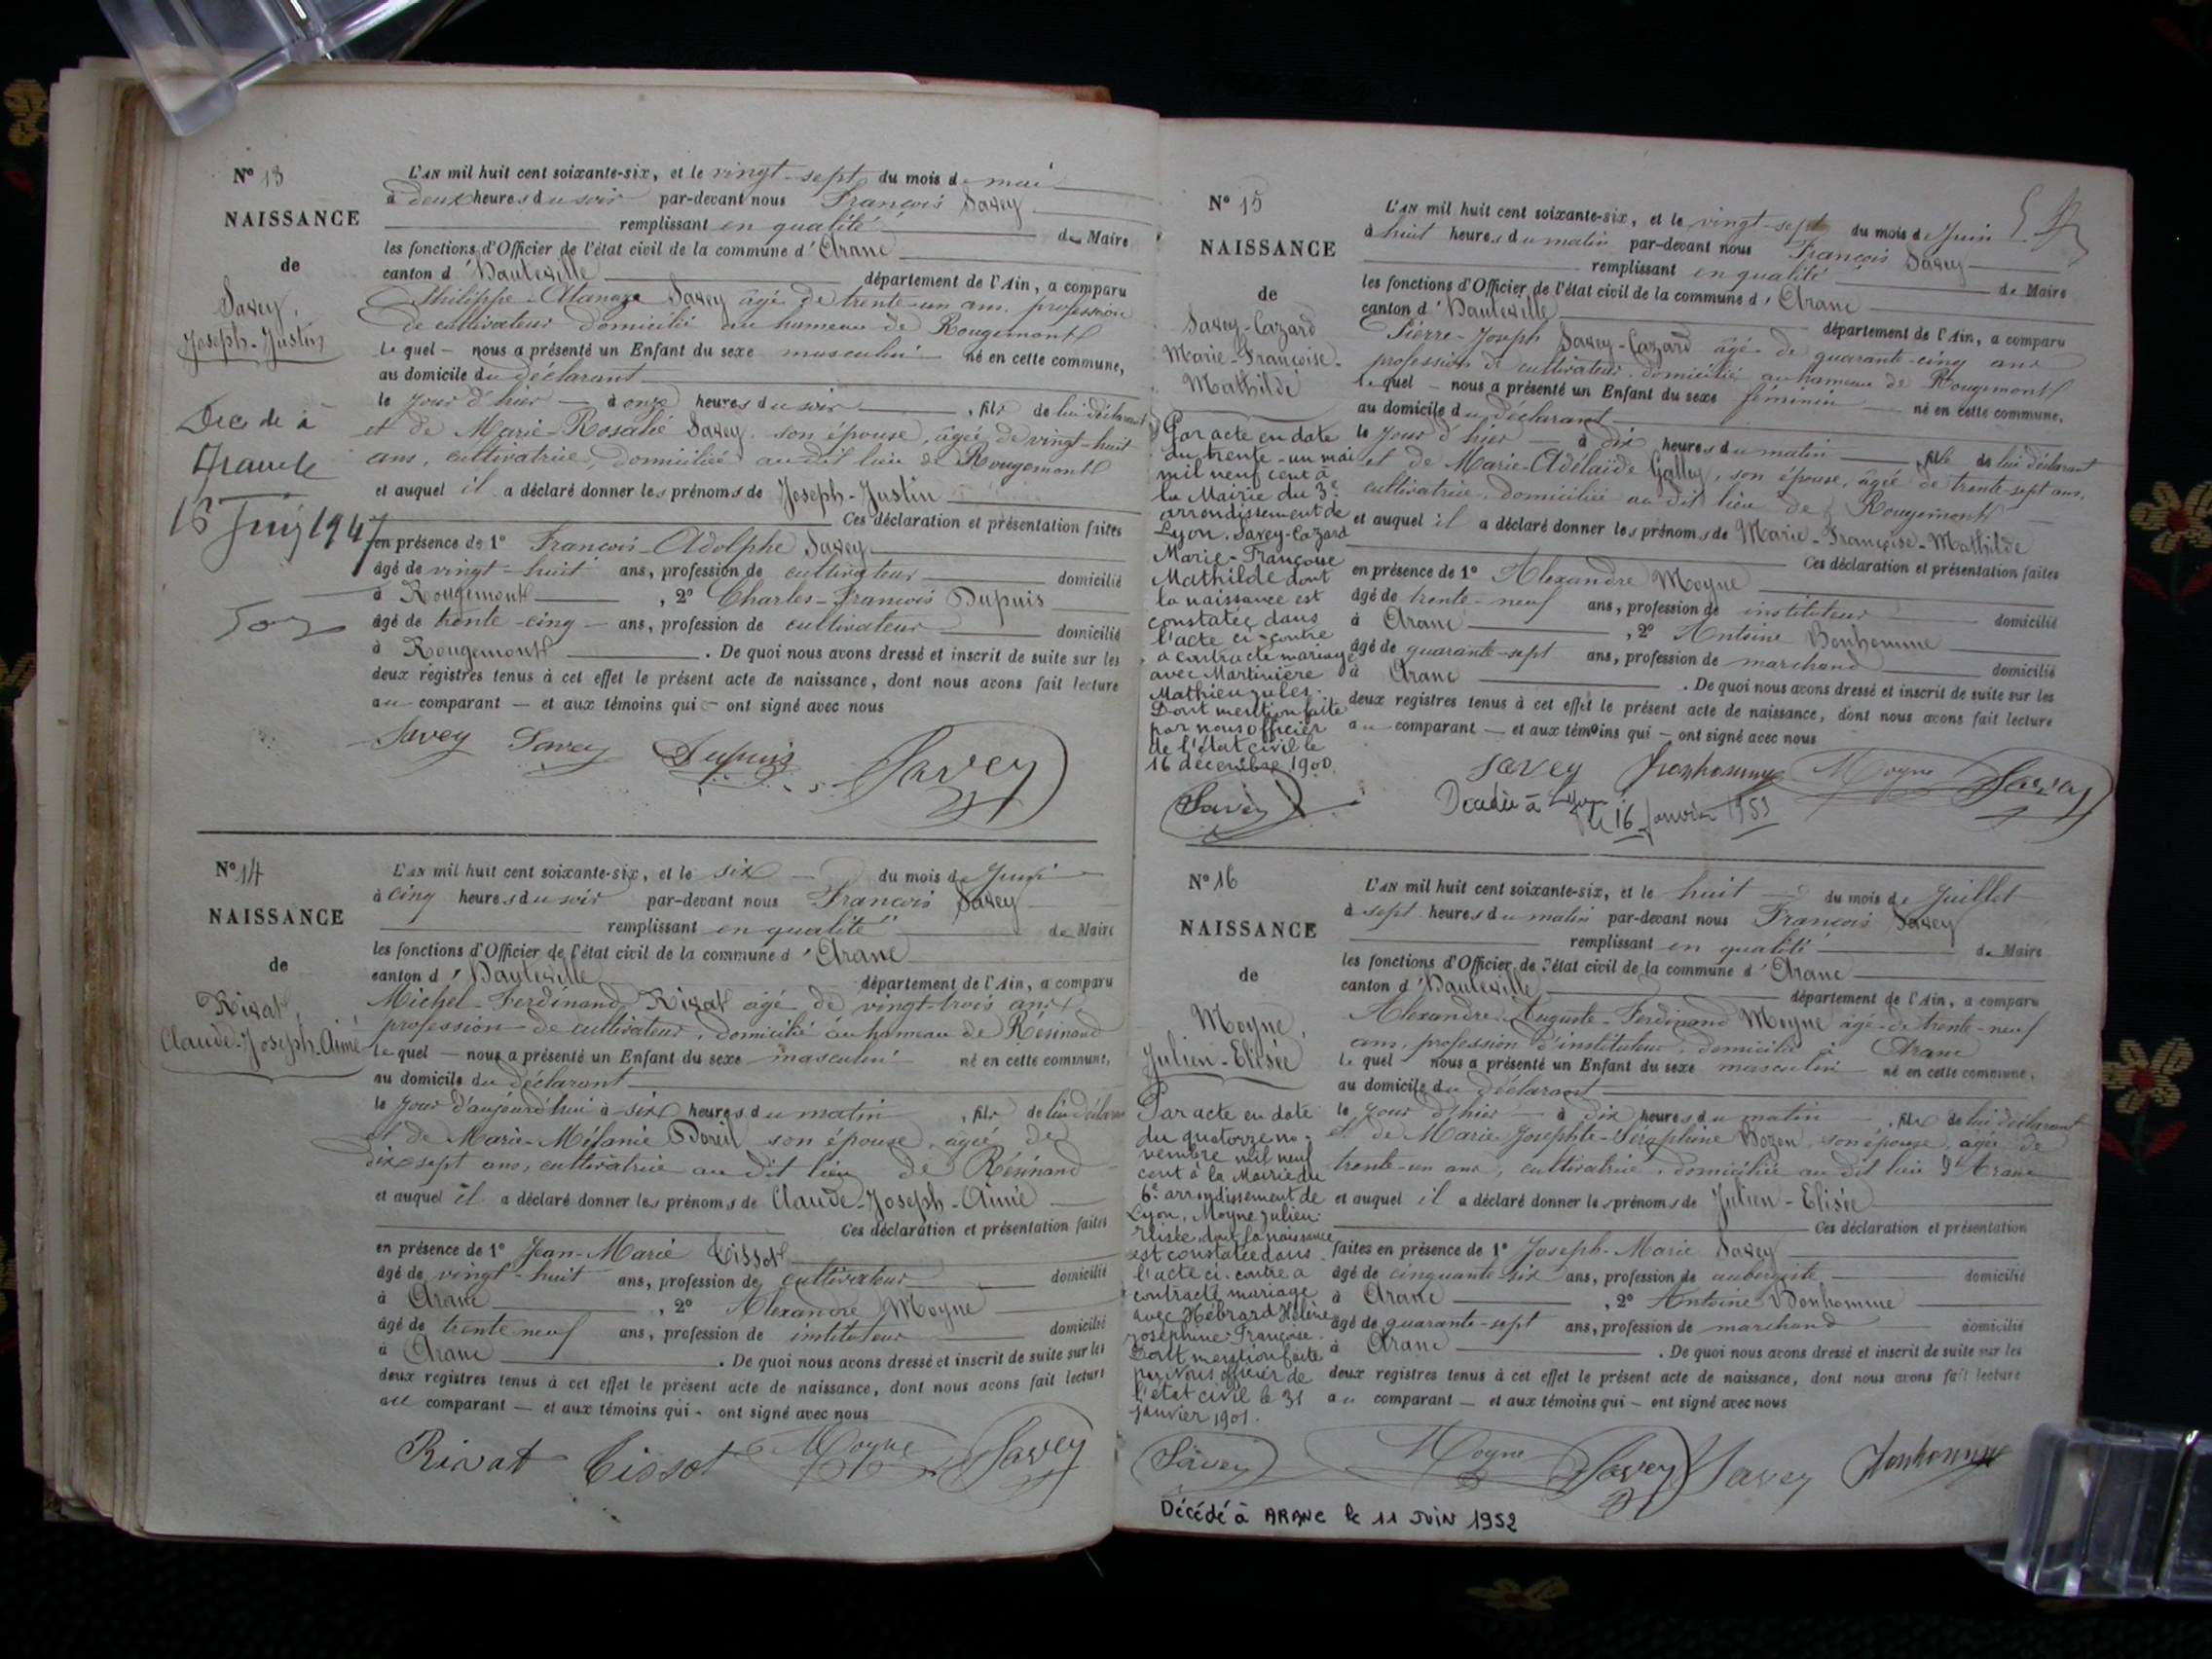 N° 13
NAISSANCE
de
Savey,
Joseph-Justin
Décédé à
Aranc le
15 Juin 1947
L'AN mil huit cent soixante-six, et le vingt-sept du mois de mai
à deux heures du soir par-devant nous François Savey
remplissant en qualité de Maire
les fonctions d'Officier de l'état civil de la commune d'Aranc
canton d'Hauteville département de l'Ain, a comparu
Philippe-Atanaze Savey âgé de trente-un ans, profession
de cultivateur domicilié au hameau de Rougemont
lequel nous a présenté un Enfant du sexe masculin né en cette commune,
au domicile du déclarant
le jour d'hier à onze heures du soir, fils de lui déclarant
et de Marie-Rosalie Savey, son épouse, âgée de vingt-huit
ans, cultivatrice, domiciliée au dit lieu de Rougemont
et auquel il a déclaré donner les prénoms de Joseph-Justin
Ces déclaration et présentation faites
en présence de 1° François-Adolphe Savey
âgé de vingt-huit ans, profession de cultivateur domicilié
à Rougemont, 2° Charles-François Dupuis
âgé de trente-cinq ans, profession de cultivateur domicilié
à Rougemont. De quoi nous avons dressé et inscrit de suite sur les
deux registres tenus à cet effet le présent acte de naissance, dont nous avons fait lecture
au comparant et aux témoins qui ont signé avec nous
Savey Savey Dupuis Savey
N° 14
NAISSANCE
de
Rivat,
Claude-Joseph-Aimé
L'AN mil huit cent soixante-six, et le six du mois de Juin
à cinq heures du soir par-devant nous François Savey
remplissant en qualité de Maire
les fonctions d'Officier de l'état civil de la commune d'Aranc
canton d'Hauteville département de l'Ain, a comparu
Michel-Ferdinand Rivat âgé de vingt-trois ans,
profession de cultivateur, domicilié au hameau de Résinand
lequel nous a présenté un Enfant du sexe masculin né en cette commune,
au domicile du déclarant
le jour d'aujourd'hui à six heures du matin, fils de lui déclarant
et de Marie-Mélanie Doreil son épouse, âgée de
dix-sept ans, cultivatrice au dit lieu de Résinand
et auquel il a déclaré donner les prénoms de Claude-Joseph-Aimé
Ces déclaration et présentation faites
en présence de 1° Jean-Marie Tissot
âgé de vingt-huit ans, profession de cultivateur domicilié
à Aranc, 2° Alexandre Moyne
âgé de trente neuf ans, profession de instituteur domicilié
à Aranc. De quoi nous avons dressé et inscrit de suite sur les
deux registres tenus à cet effet le présent acte de naissance, dont nous avons fait lecture
au comparant et aux témoins qui ont signé avec nous
Rivat Tissot Moyne Savey
N° 15
NAISSANCE
de
Savey-Cazard
Marie-Françoise-
Mathilde
Par acte en date
du trente-un mai
mil neuf cent à
la Mairie du 3e
arrondissement de
Lyon, Savey-Cazard
Marie-Françoise
Mathilde dont
la naissance est
constatée dans
l'acte ci-contre
a contracté mariage
avec Martinière
Mathieu Jules.
Dont mention faite
par nous officier
de l'état civil le
16 décembre 1900
Savey
L'AN mil huit cent soixante-six, et le vingt-sept du mois de Juin
à huit heures du matin par-devant nous François Savey
remplissant en qualité de Maire
les fonctions d'Officier de l'état civil de la commune d'Aranc
canton d'Hauteville département de l'Ain, a comparu
Pierre-Joseph Savey-Cazard âgé de quarante-cinq ans
profession de cultivateur domicilié au hameau de Rougemont
lequel nous a présenté un Enfant du sexe féminin né en cette commune,
au domicile du déclarant
le jour d'hier à dix heures du matin, fille de lui déclarant
et de Marie-Adélaïde Gallay, son épouse, âgée de trente-sept ans,
cultivatrice, domiciliée au dit lieu de Rougemont
et auquel il a déclaré donner les prénoms de Marie-Françoise-Mathilde
Ces déclaration et présentation faites
en présence de 1° Alexandre Moyne
âgé de trente-neuf ans, profession de instituteur domicilié
à Aranc, 2° Antoine Bonhomme
âgé de quarante-sept ans, profession de marchand domicilié
à Aranc. De quoi nous avons dressé et inscrit de suite sur les
deux registres tenus à cet effet le présent acte de naissance, dont nous avons fait lecture
au comparant et aux témoins qui ont signé avec nous
Savey Bonhomme Moyne Savey
Décédée à Lyon
le 16 Janvier 1953
N° 16
NAISSANCE
de
Moyne,
Julien-Elisée
Par acte en date
du quatorze no-
vembre mil neuf
cent à la Mairie du
6e arrondissement de
Lyon, Moyne Julien-
Elisée, dont la naissance
est constatée dans
l'acte ci-contre a
contracté mariage
avec Hébrard Hélène
Joséphine Françoise.
Dont mention faite
par Nous officier de
l'état civil le 31
janvier 1901.
Savey
L'AN mil huit cent soixante-six, et le huit du mois de Juillet
à sept heures du matin par-devant nous François Savey
remplissant en qualité de Maire
les fonctions d'Officier de l'état civil de la commune d'Aranc
canton d'Hauteville département de l'Ain, a comparu
Alexandre-Auguste-Ferdinand Moyne âgé de trente-neuf
ans, profession d'instituteur, domicilié à Aranc
lequel nous a présenté un Enfant du sexe masculin né en cette commune,
au domicile du déclarant
le jour d'hier à dix heures du matin, fils de lui déclarant
et de Marie-Josephte-Séraphine Bozon, son épouse, agée de
trente-un ans, cultivatrice, domiciliée au dit lieu d'Aranc
et auquel il a déclaré donner les prénoms de Julien-Elisée
Ces déclaration et présentation
faites en présence de 1° Joseph-Marie Savey
âgé de cinquante-six ans, profession de aubergiste domicilié
à Aranc, 2° Antoine Bonhomme
âgé de quarante-sept ans, profession de marchand domicilié
à Aranc. De quoi nous avons dressé et inscrit de suite sur les
deux registres tenus à cet effet le présent acte de naissance, dont nous avons fait lecture
au comparant et aux témoins qui ont signé avec nous
Moyne Savey Savey Bonhomme
Décédé à ARANC le 11 JUIN 1952